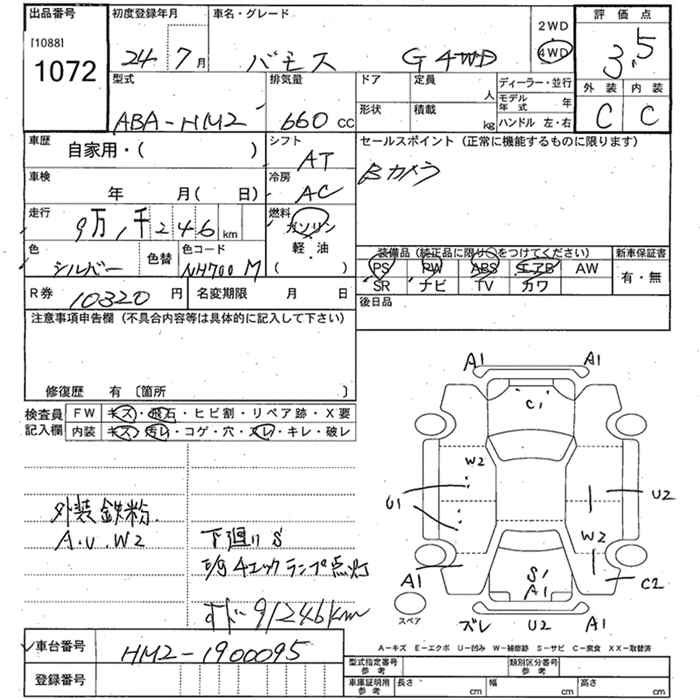 出品番号 初度登録年月 車名・グレード 2WD 評価点
[1088] 1072 24年7月 バモス G 4WD 4WD 3.5
型式 排気量 ドア 定員 人 ディーラー・並行 外装 内装
ABA-HM2 660 CC 形状 積載 kg モデル年式 年 ハンドル 左・右 C C
車歴 自家用・( ) シフト AT セールスポイント (正常に機能するものに限ります)
車検 年 月( 日) 冷房 AC Bカメラ
走行 9万1千246km 燃料 ガソリン 軽・油 ( ・ )
色 シルバー 色替 色コード NH700M
装備品 (純正品に限り○をつけてください) 新車保証書
PS PW ABS エアB AW 有・無
SR ナビ TV カワ
R券 10320円 名変期限 月 日 後日品
注意事項申告欄 (不具合内容等は具体的に記入して下さい)
修復歴 有 〔箇所 〕
検査員 FW キズ・飛石・ヒビ割・リペア跡・X要
記入欄 内装 キズ・汚レ・コゲ・穴・スレ・キレ・破レ
A1 A1
C1
W2
U1 U2
W2
A1 S1 C2
A1
スペア ズレ U2 A1
外装鉄粉.
A.U.W2
下廻りS
E/g チェックランプ点灯
すドー91246km
A-キズ E-エクボ U-凹み W-補修跡 S-サビ C-腐食 XX-取替済
車台番号 HM2-1900095
登録番号
型式指定番号 参考 類別区分番号 参考
車庫証明用 参考 長さ cm 幅 cm 高さ cm